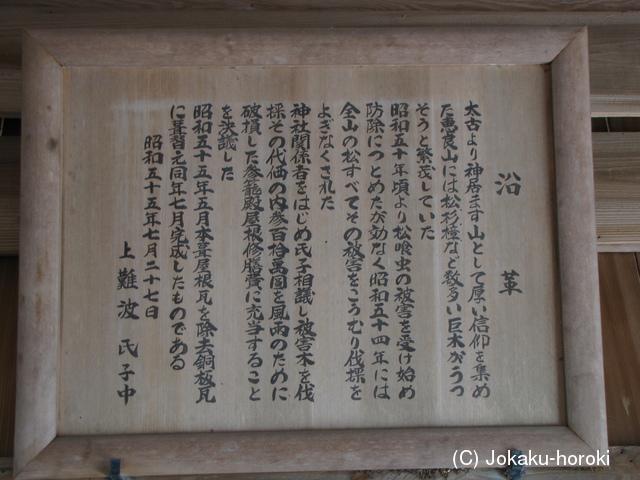 沿革
太古より神居ます山として厚い信仰を集め
た恵良山には松杉檀など数多い巨木がうつ
そうと繁茂していた
昭和五十年頃より松喰虫の被害を受け始め
防除につとめたが効なく昭和五十四年には
全山の松すべてその被害をこうむり伐採を
よぎなくされた
神社関係者をはじめ氏子相議し被害木を伐
採その代価の内参百拾萬円を風雨のために
破損した参籠殿屋根修膳費に充当すること
を決議した
昭和五十五年五月本葺屋根瓦を除去銅板瓦
に葺習え同年七月完成したものである
昭和五十五年七月二十七日
上難波氏子中
(C) Jokaku-horoki